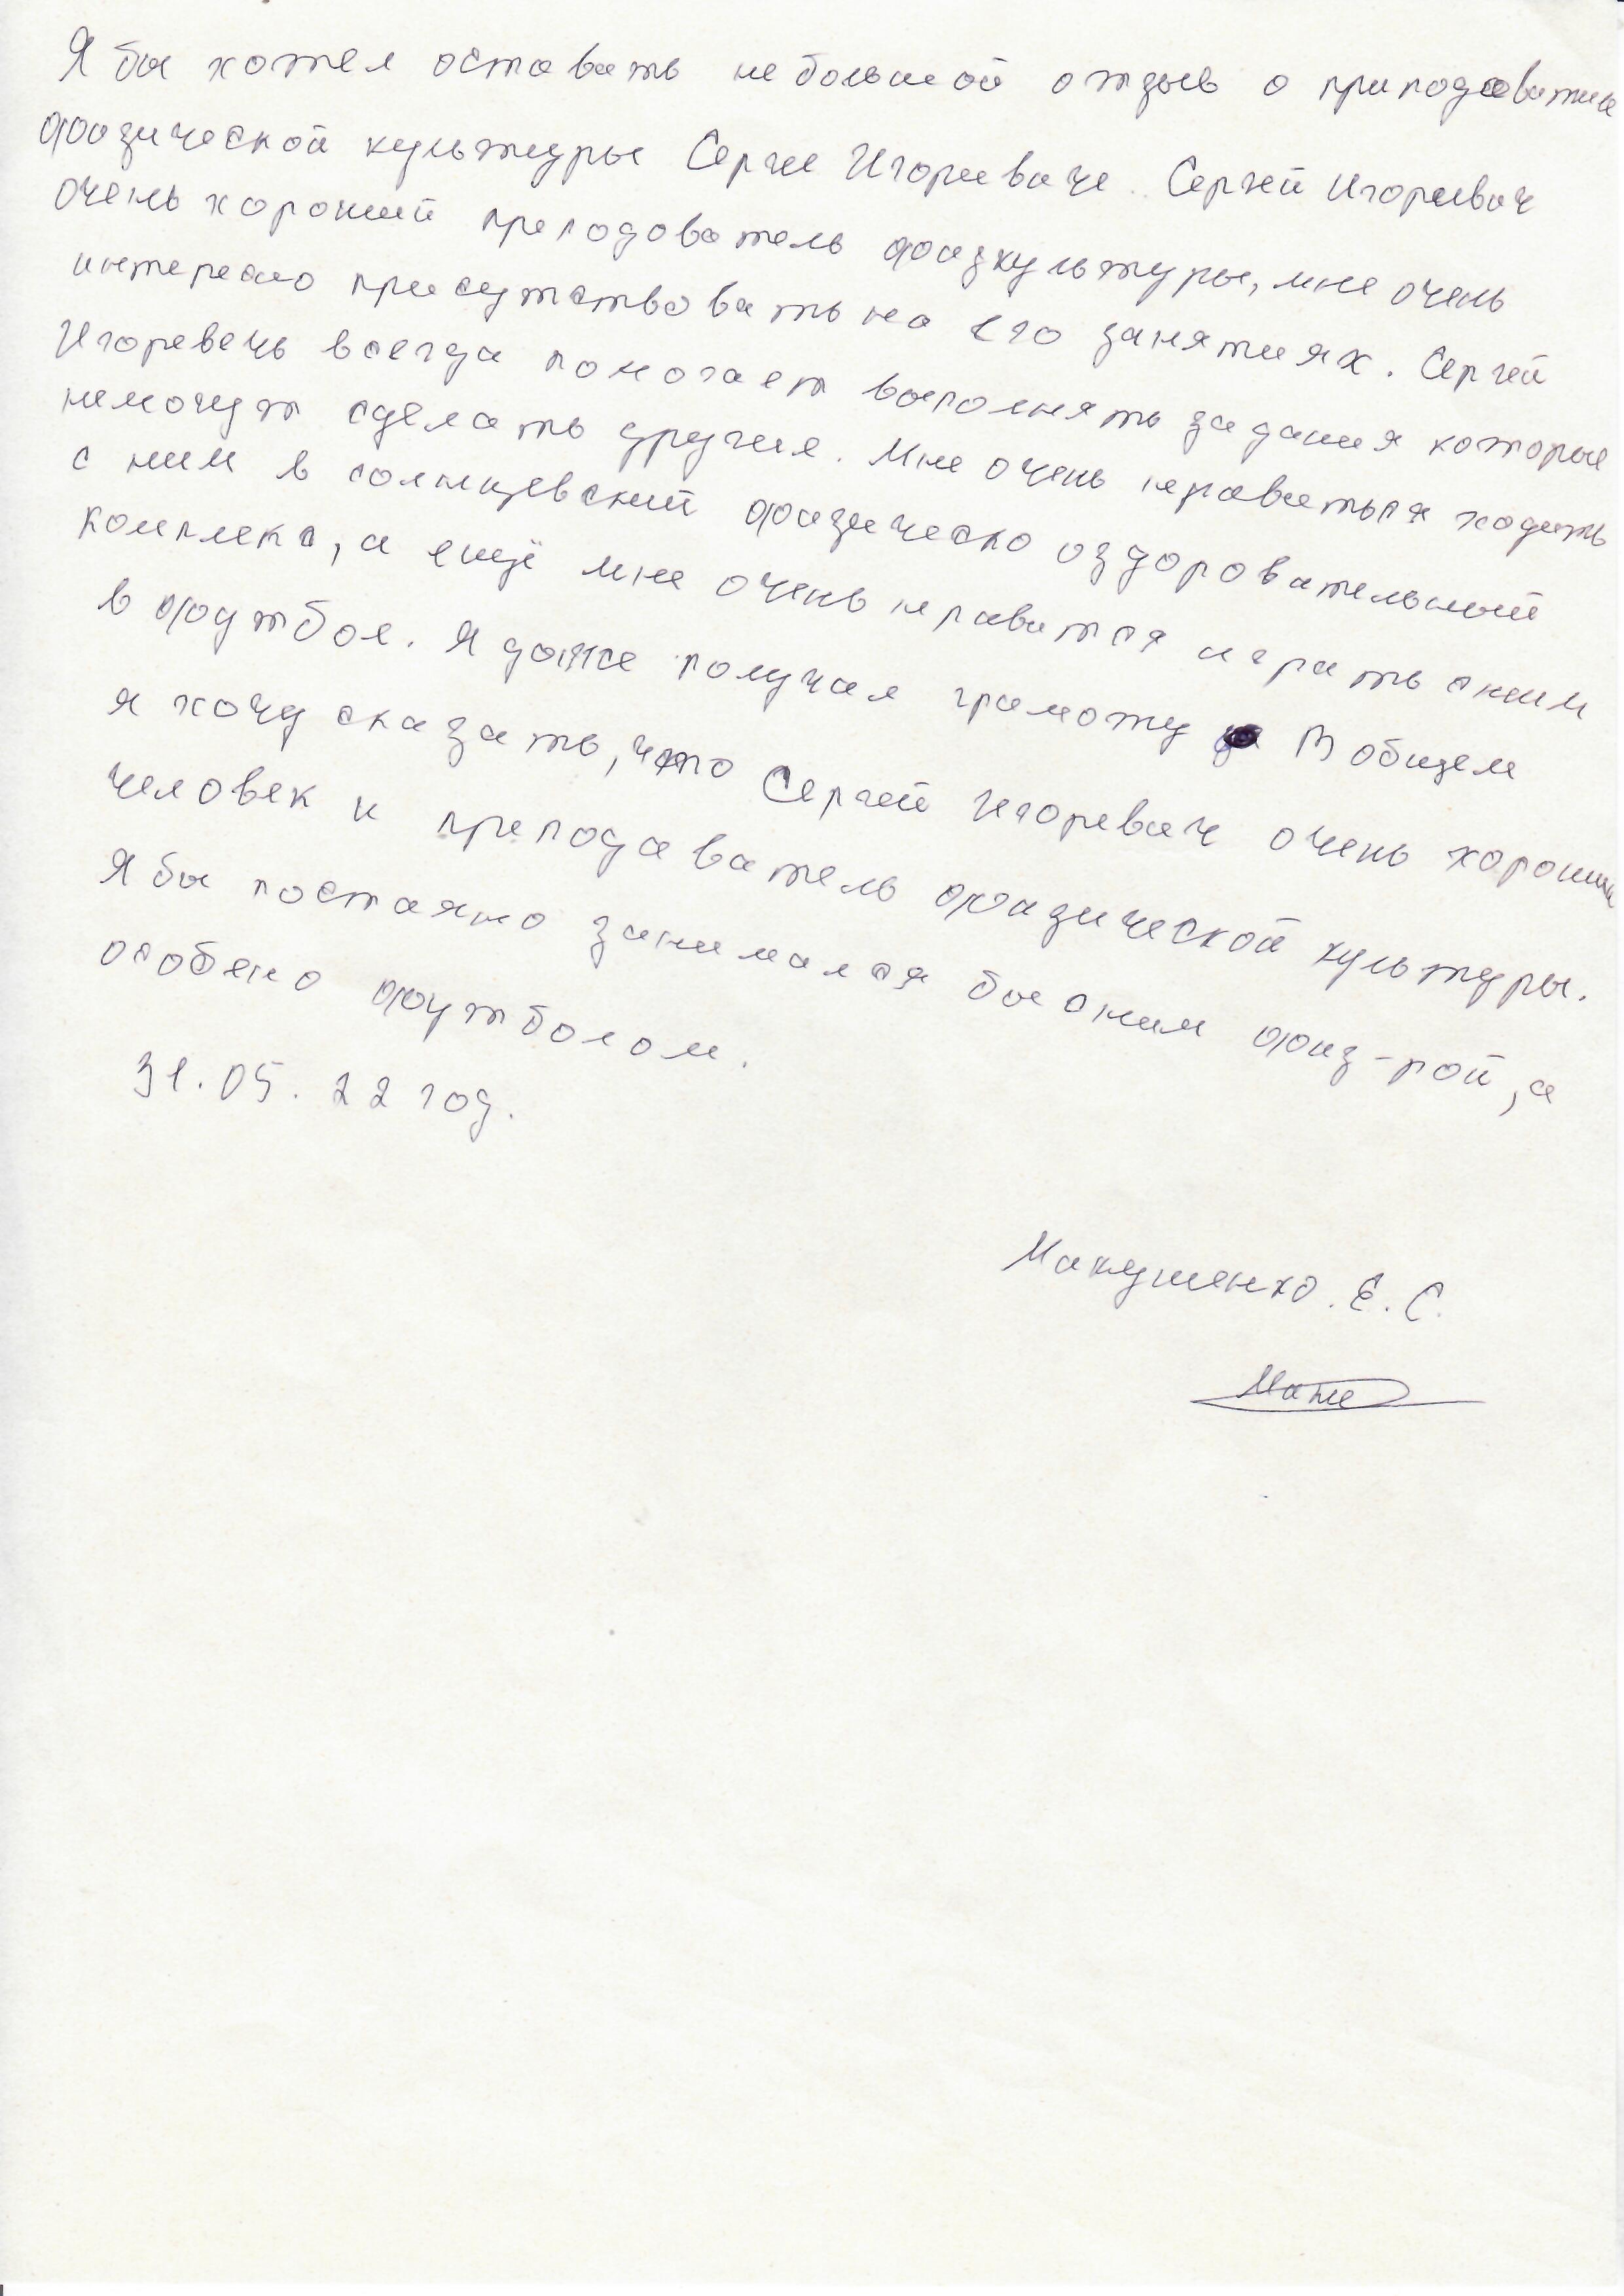 Я бы хотел оставить небольшой отзыв о приподователе
физической культуры Сергее Игоревиче. Сергей Игоревич
очень хороший преподователь физкультуры, мне очень
интересно присутствовать на его занятиях. Сергей
Игоревечь всегда помогает выполнять задания которые
немогут сделать другие. Мне очень нравиться ходить
с ним в солнцевский физическо оздоровательный
комплекс, а ещё мне очень нравится играть сним
в футбол. Я даже получил грамоту В общем
я хочу сказать, что Сергей Игоревич очень хороший
человек и преподаватель физической культуры.
Я бы постаяно занимался бы сним физ-рой, а
особено футболом.
31.05.22 год.
Макушенко. Е. С.